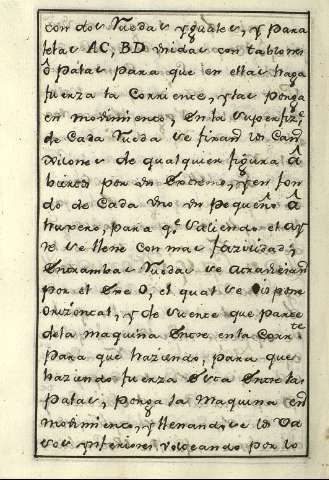 con dos Ruedas yguales, y para
lelas AC, BD unidas con tablones
ô palas para que en ellas haga
fuerza la Corriente, y las ponga
en movimiento, En la superfizie
de Cada Rueda se fixan los Can
xilones de qualquier figura â
biertos por un Extremo, y en fon
do de Cada uno un pequeño â
gujero, para q.e saliendo el ay
re se llene con mas fazilidad,
Entrambas Ruedas se atraviesan
por el Exe O, el qual se pone
orizontal, y de suerte que parte
de la maquina Entre en la Corr.te
para que haziendo, para que
haziendo fuerza Esta Entre las
palas, ponga la Maquina en
movimiento, y llenandose los Va
sos ynferiores, volteando por lo